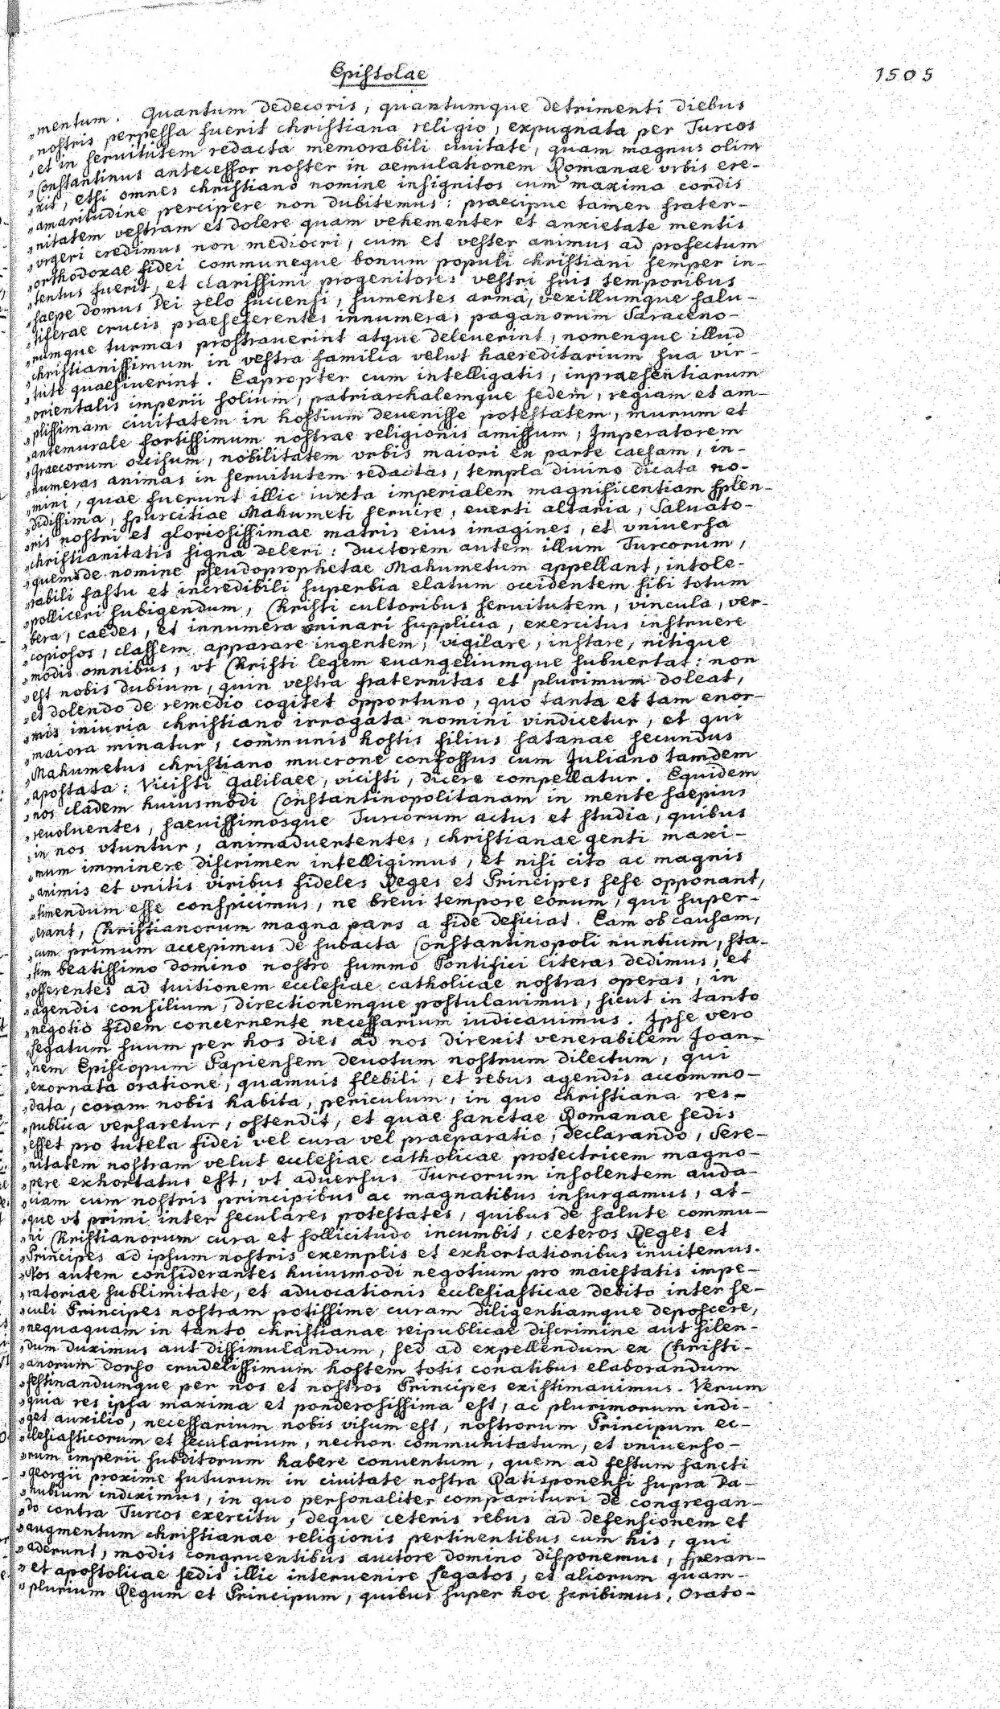 Epistolae
1505
„mentum. Quantum dedecoris, quantumque detrimenti diebus
„nostris perpessa fuerit christiana religio, expugnata per Turcos
„et in seruitutem redacta memorabili ciuitate, quam magnus olim
„Constantinus antecessor noster in aemulationem Romanae vrbis ere-
„xit, etsi omnes christiano nomine insignitos cum maxima cordis
„amaritudine percipere non dubitemus: praecipue tamen frater-
„nitatem vestram et dolere quam vehementer et anxietate mentis
„vrgeri credimus non mediocri, cum et vester animus ad profectum
„orthodoxae fidei communeque bonum populi christiani semper in-
„tentus fuerit, et clarissimi progenitores vestri suis temporibus
„saepe domus Dei zelo succensi, sumentes arma, vexillumque salu-
„tiferae crucis praeseferentes innumeras paganorum Saraceno-
„rumque turmas prostrauerint atque deleuerint, nomenque illud
„christianissimum in vestra familia velut haereditarium sua vir-
„tute quaesiuerint. Eapropter cum intelligatis, inpraesentiarum
„orientalis imperii solium, patriarchalemque sedem, regiam et am-
„plissimam ciuitatem in hostium deuenisse potestatem, murum et
„antemurale fortissimum nostrae religionis amissum, Imperatorem
„Graecorum occisum, nobilitatem vrbis maiori ex parte caesam, in-
„numeras animas in seruitutem redactas, templa diuino dicata no-
„mini, quae fuerunt illic iuxta imperialem magnificentiam splen-
„didissima, spurcitiae Mahumeti seruire, euerti altaria, Saluato-
„ris nostri et gloriosissimae matris eius imagines, et vniuersa
„christianitatis signa deleri: ductorem autem illum Turcorum,
„quem de nomine pseudoprophetae Mahumetum appellant, intole-
„rabili fastu et incredibili superbia elatum occidentem sibi totum
„polliceri subigendum, Christi cultoribus seruitutem, vincula, ver-
„bera, caedes, et innumera minari supplicia, exercitus instruere
„copiosos, classem apparare ingentem, vigilare, instare, nitique
„modis omnibus, vt Christi legem euangeliumque subuertat: non
„est nobis dubium, quin vestra fraternitas et plurimum doleat,
„et dolendo de remedio cogitet opportuno, quo tanta et tam enor-
„mis iniuria christiano irrogata nomini vindicetur, et qui
„maiora minatur, communis hostis filius satanae secundus
„Mahumetus christiano mucrone confossus cum Juliano tamdem
„apostata: Vicisti Galilaee, vicisti, dicere compellatur. Equidem
„nos cladem huiusmodi Constantinopolitanam in mente saepius
„reuoluentes, saeuissimosque Turcorum actus et studia, quibus
„in nos vtuntur, animaduertentes, christianae genti maxi-
„mum imminere discrimen intelligimus, et nisi cito ac magnis
„animis et vnitis viribus fideles Reges et Principes sese opponant,
„timendum esse conspicimus, ne breui tempore eorum, qui super-
„erant, Christianorum magna pars a fide deficiat. Eam ob causam,
„cum primum accepimus de subacta Constantinopoli nuntium, sta-
„tim beatissimo domino nostro summo Pontifici literas dedimus, et
„offerentes ad tuitionem ecclesiae catholicae nostras operas, in
„agendis consilium, directionemque postulauimus, sicut in tanto
„negotio fidem concernente necessarium iudicauimus. Ipse vero
„legatum suum per hos dies ad nos direxit venerabilem Joan-
„nem Episcopum Papiensem deuotum nostrum dilectum, qui
„exornata oratione, quamuis flebili, et rebus agendis accommo-
„data, coram nobis habita, periculum, in quo christiana res-
„publica versaretur, ostendit, et quae sanctae Romanae sedis
„esset pro tutela fidei vel cura vel praeparatio, declarando, Sere-
„nitatem nostram velut ecclesiae catholicae protectricem magno-
„pere exhortatus est, vt aduersus Turcorum insolentem auda-
„ciam cum nostris principibus ac magnatibus insurgamus, at-
„que vt primi inter seculares potestates, quibus de salute commu-
„ni Christianorum cura et sollicitudo incumbit, ceteros Reges et
„Principes ad ipsum nostris exemplis et exhortationibus inuitemus.
„Nos autem considerantes huiusmodi negotium pro maiestatis impe-
„ratoriae sublimitate, et aduocationis ecclesiasticae debito inter se-
„culi Principes nostram potissime curam diligentiamque deposcere,
„nequaquam in tanto christianae reipublicae discrimine aut silen-
„dum duximus aut dissimulandum, sed ad expellendum ex Christi-
„anorum dorso crudelissimum hostem totis conatibus elaborandum
„festinandumque per nos et nostros Principes existimauimus. Verum
„quia res ipsa maxima et ponderosissima est, ac plurimorum indi-
„get auxilio, necessarium nobis visum est, nostrorum Principum ec-
„clesiasticorum et secularium, necnon communitatum, et vniuerso-
„rum imperii subditorum habere conuentum, quem ad festum sancti
„Georgii proxime futurum in ciuitate nostra Ratisponensi supra Da-
„nubium indiximus, in quo personaliter comparituri de congregan-
„do contra Turcos exercitu, deque ceteris rebus ad defensionem et
„augmentum christianae religionis pertinentibus cum his, qui
„aderunt, modis congruentibus auctore domino disponemus, speran-
„et apostolicae sedis illic interuenire legatos, et aliorum quam-
„plurium Regum et Principum, quibus super hoc scribimus, Orato-